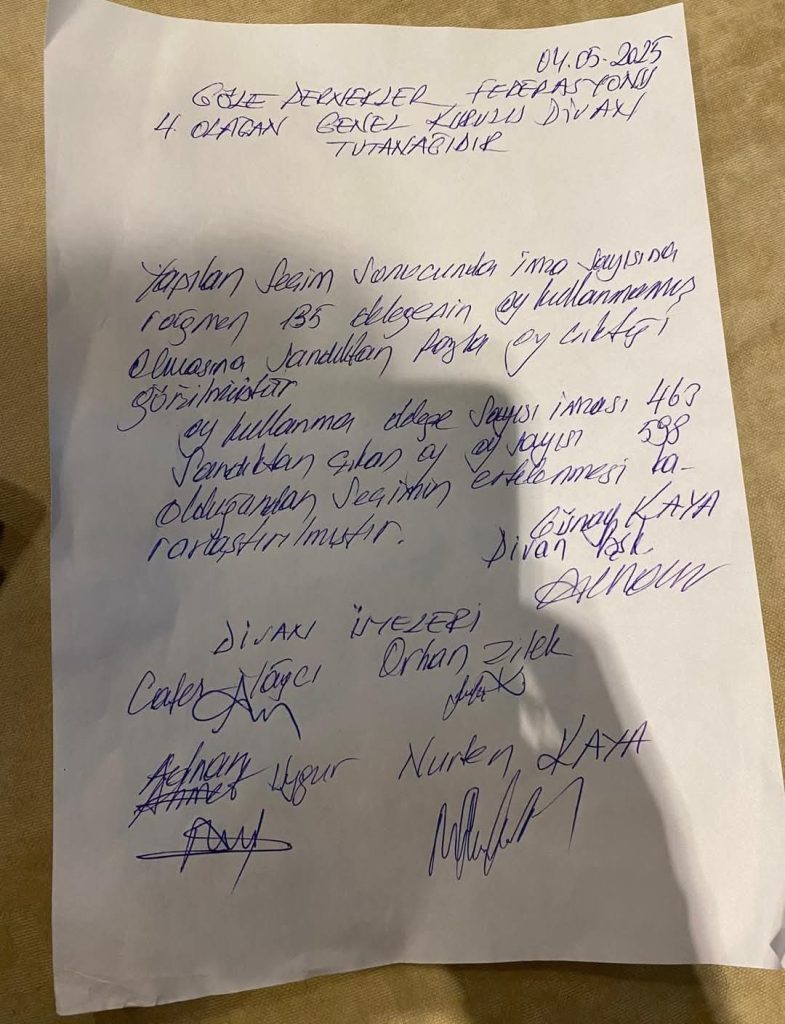 04.05.2025
GÖLE DERNEKLER FEDERASYONU
4. OLAĞAN GENEL KURULU DİVANI
TUTANAĞIDIR
Yapılan seçim sonucunda imza sayısına
rağmen 135 delegenin oy kullanmamış
olmasına sandıktan fazla oy çıktığı
görülmüştür
oy kullanma delege sayısı imzası 463
Sandıktan çıkan oy oy sayısı 598
olduğundan seçimin ertelenmesi ka-
rarlaştırılmıştır.
Günay KAYA
Divan Bşk
DİVAN ÜYELERİ
Cafer Orhan Zilek
Adnan Uygur Nurten KAYA
Ahmet